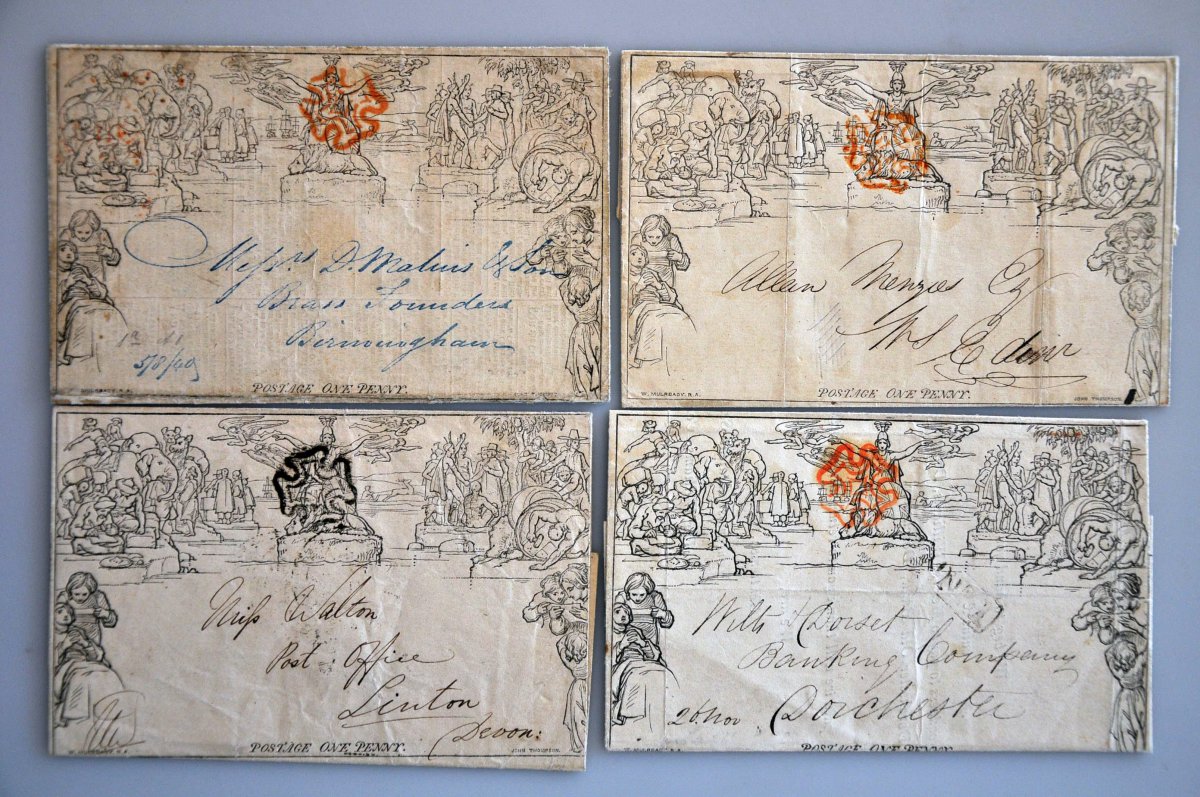 Messrs. D. Malins & Son
Brass Founders
Birmingham
5/8/40
POSTAGE ONE PENNY.
W. MULREADY, R.A.
Allan Menzies Esq
WS Edinr
W. MULREADY, R.A.
POSTAGE ONE PENNY.
JOHN THOMPSON.
Miss Walton
Post Office
Linton
Devon:
W. MULREADY, R.A.
POSTAGE ONE PENNY.
JOHN THOMPSON.
Wilts & Dorset
Banking Company
26 Nov Dorchester
POSTAGE ONE PENNY.